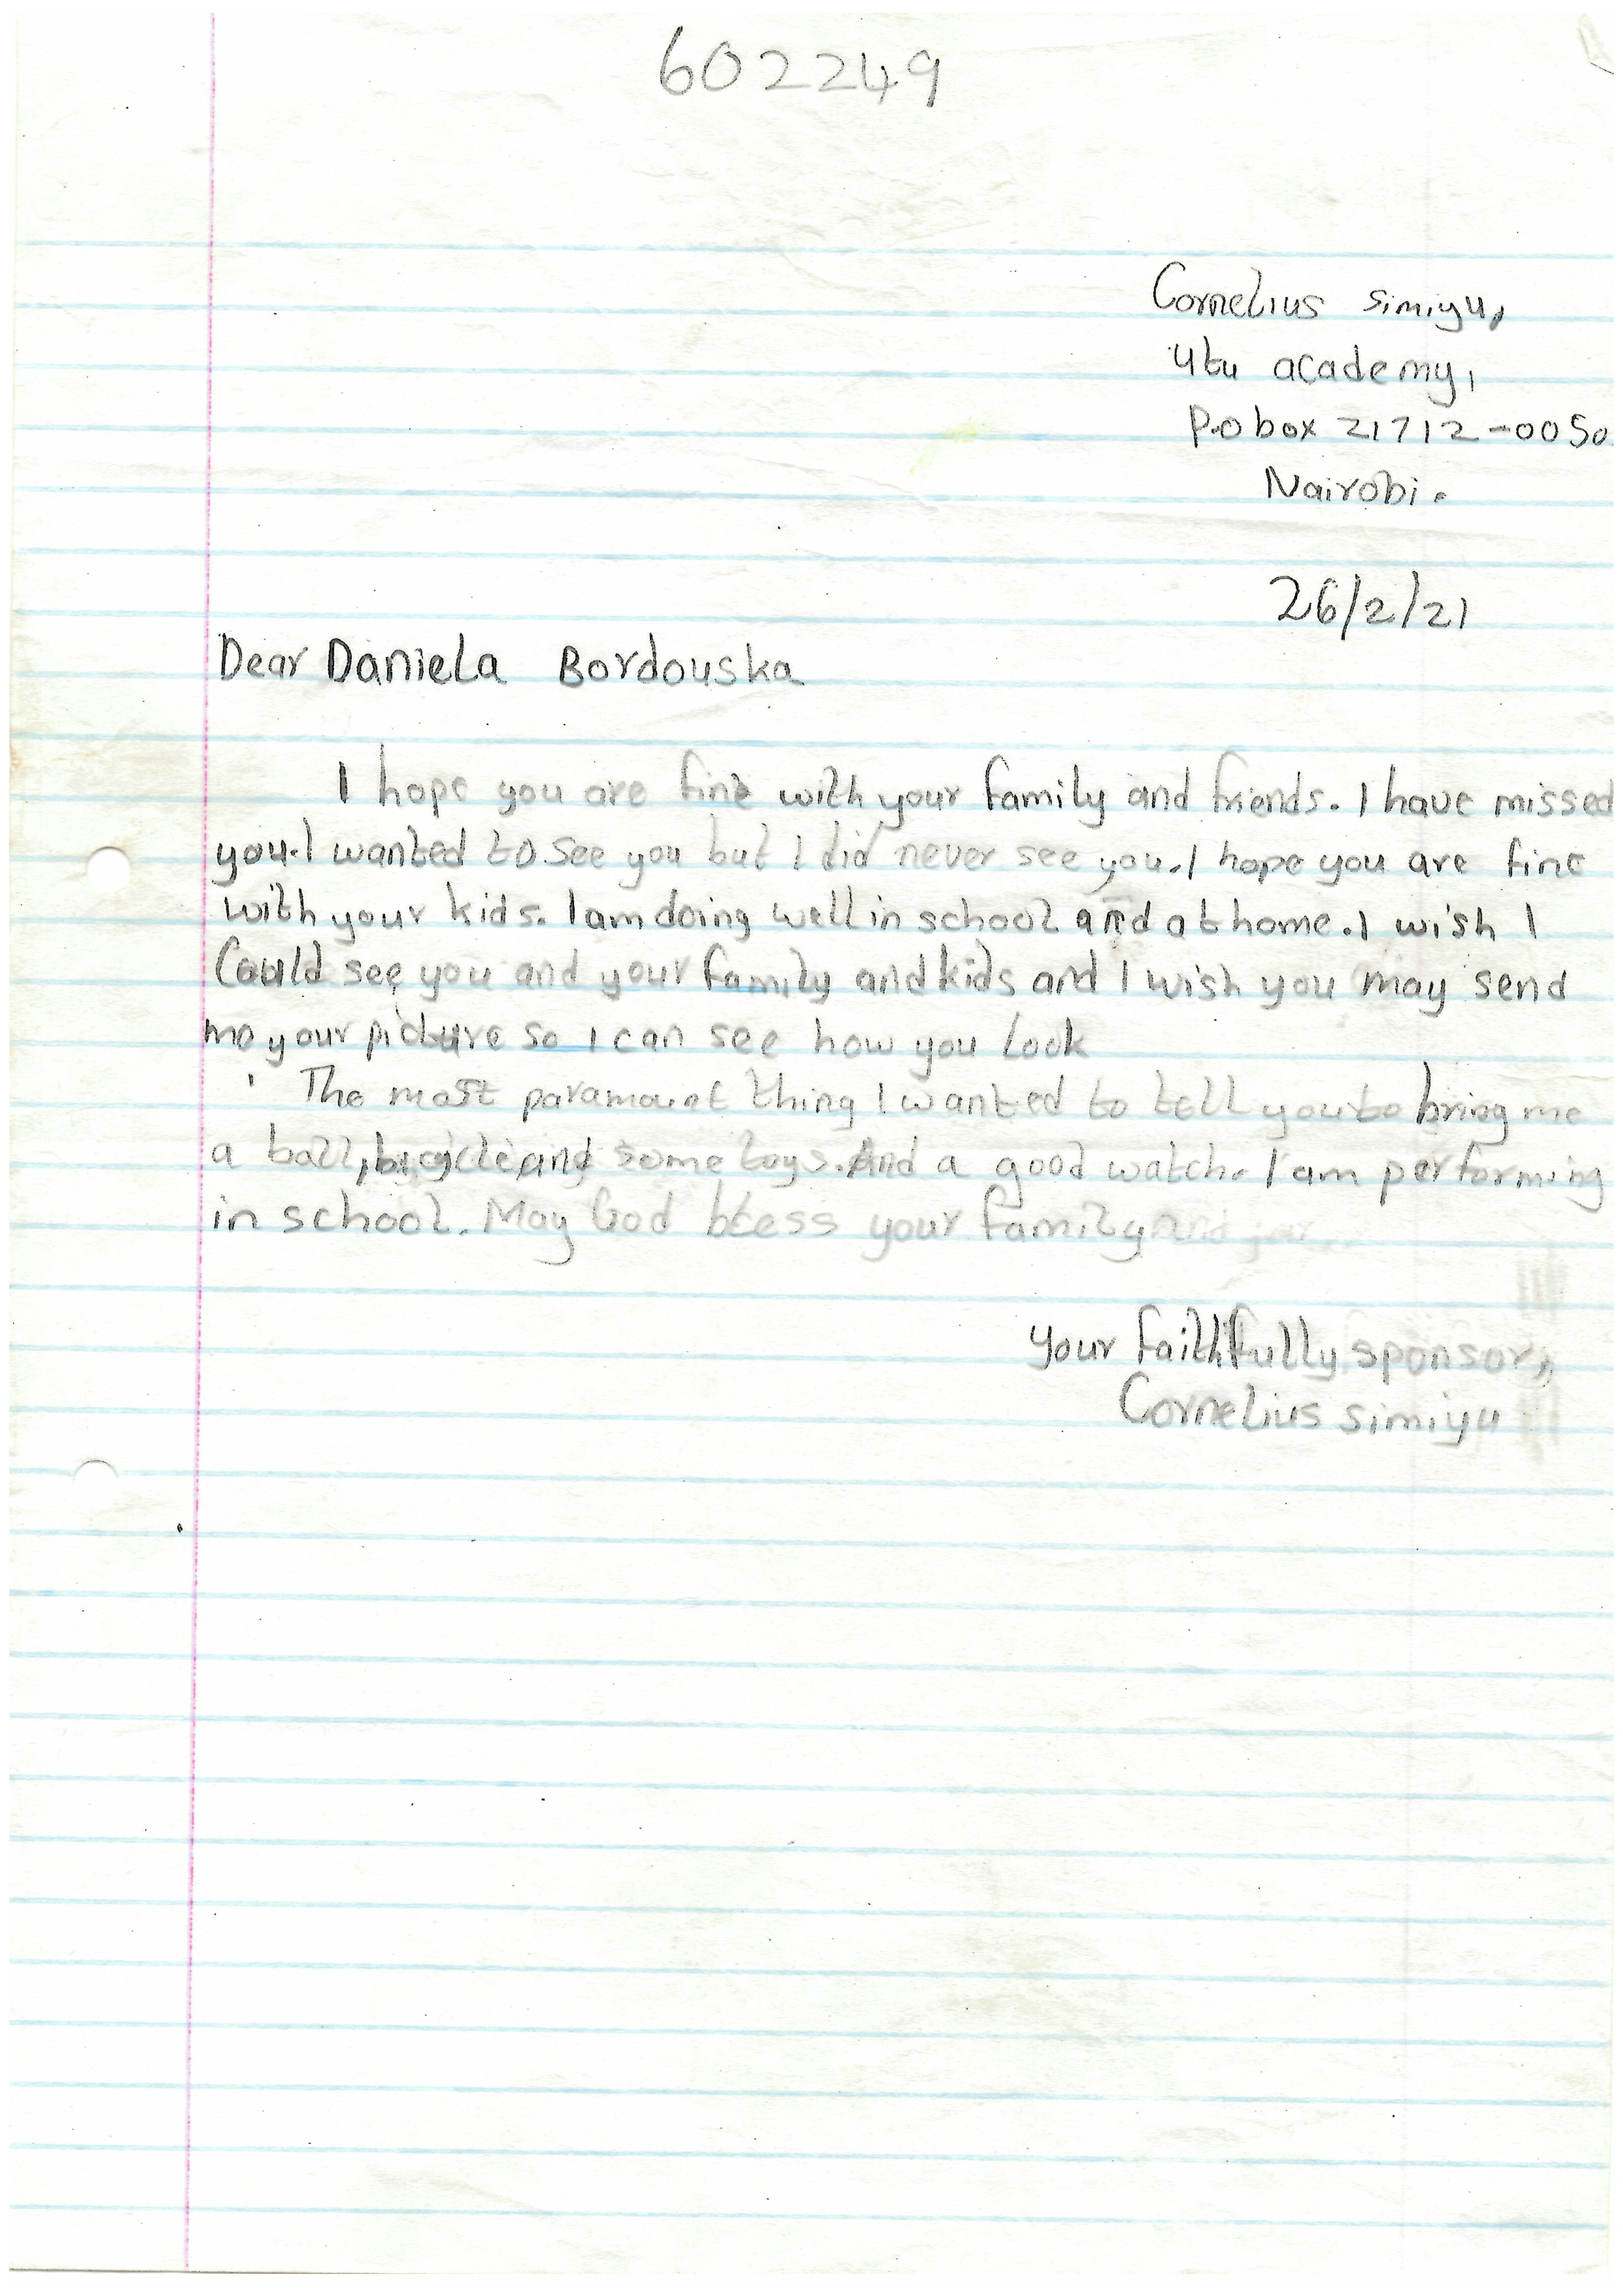 602249
Cornelius simiyu,
utu academy,
P.o box 21712-0050
Nairobi.
26/2/21
Dear Daniela Bordouska
I hope you are fine with your family and friends. I have missed
you. I wanted to see you but I did never see you. I hope you are fine
with your kids. I am doing well in school and at home. I wish I
Could see you and your family and kids and I wish you may send
me your picture so I can see how you look
The most paramount thing I wanted to tell you to bring me
a ball, bicycle and some toys. And a good watch. I am performing
in school. May God bless your family
your faithfully sponsor,
Cornelius simiyu